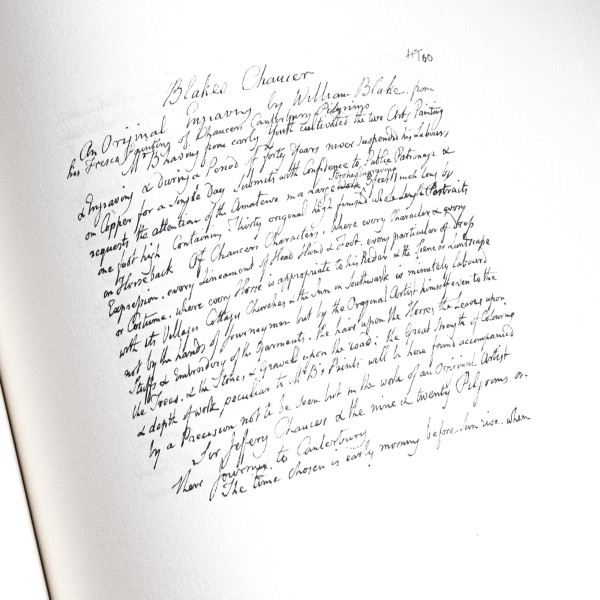 4т60
Blakes Chaucer
An Original Engraving by William Blake from
his Fresco Painting of Chaucers Canterbury Pilgrims
Mr B having from early Youth cultivated the two Arts Painting
& Engraving & during a Period of forty Years never suspended his Labours
on Copper for a single Day Submits with Confidence to Public Patronage &
requests the attention of the Amateur in a Large Work Strong
one foot high Containing Thirty original high finishd whole Length Portraits
on Horseback Of Chaucers Characters, where every Character & every
Expression, every Lineament of Head Hand & Foot, every particular of Dress
or Costume, where every Horse is appropriate to his Rider & the Scene or Landscape
with its Villages Cottages Churches & the Inn in Southwark is minutely Labourd
not by the hands of Journeymen but by the Original Artist himself even to the
Stuffs & Embroidery of the Garments, the hair upon the Horses, the Leaves upon
the Trees, & the Stones & Gravel upon the road; the Great Strength of Colouring
& depth of work peculiar to Mr B's Prints will be here found accompanied
by a Precision not to be seen but in the work of an Original Artist
Sir Jeffery Chaucer & the nine & twenty Pilgrims on
their Journey to Canterbury
The time chosen is early morning before Sunrise, when